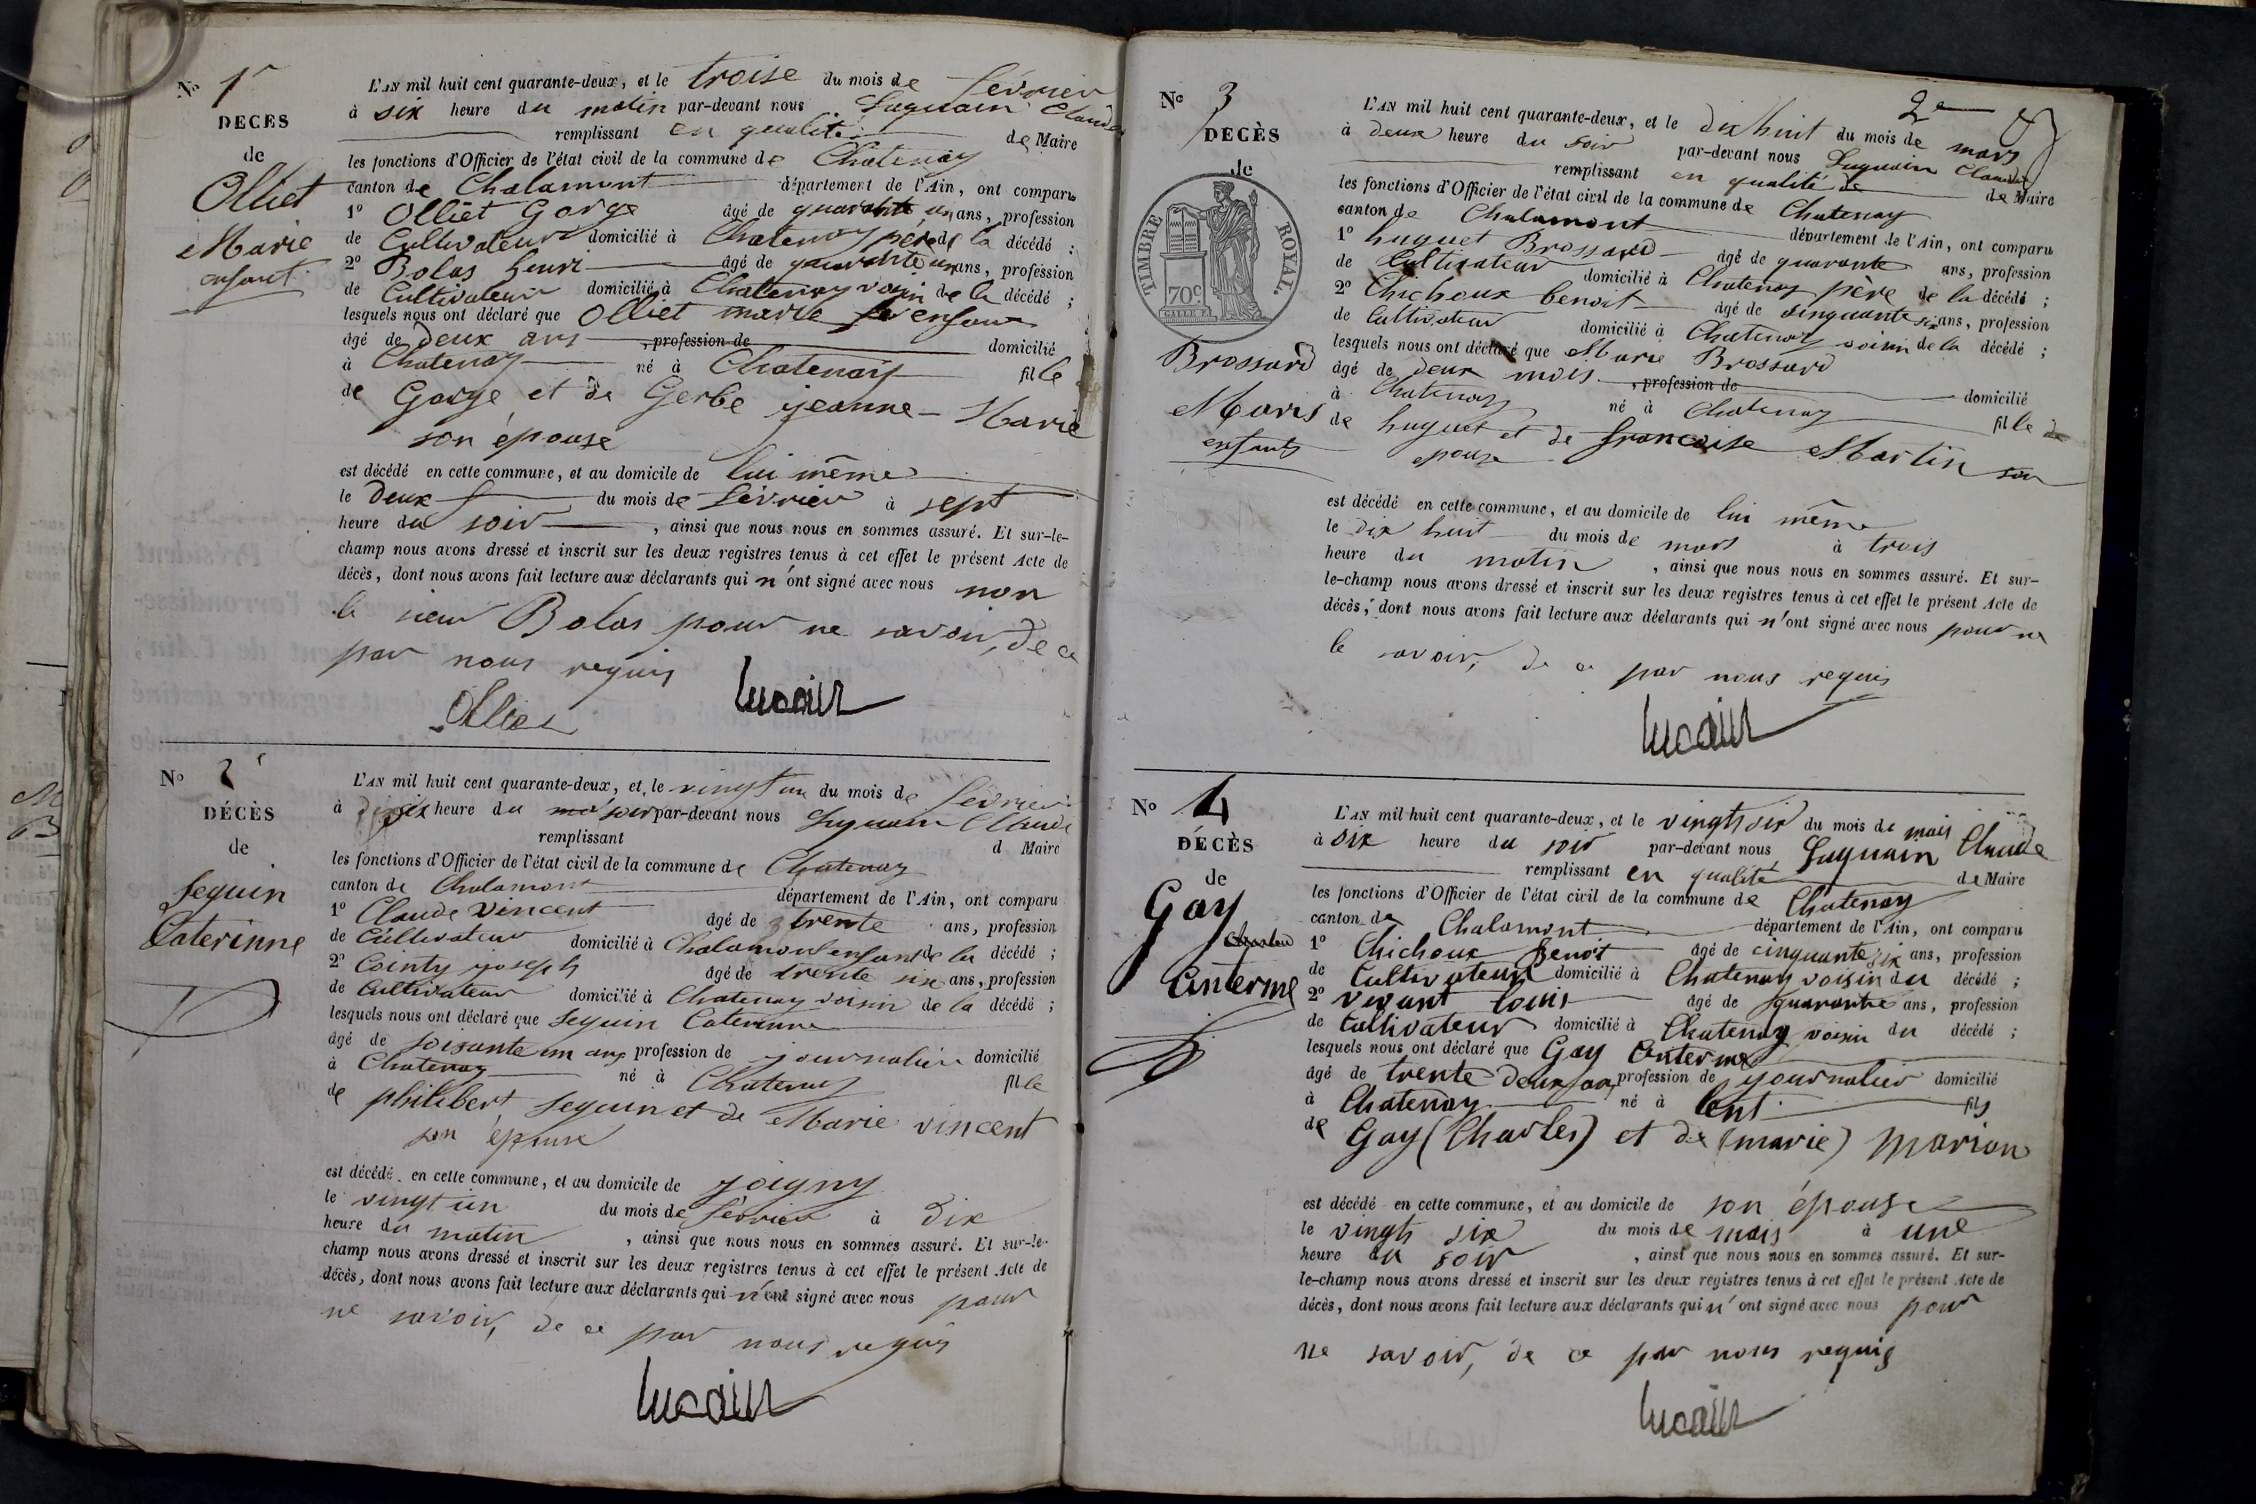 No 1r
DECES
de
Olliet
Marie
enfant
L'AN mil huit cent quarante-deux, et le troise du mois de février
à six heure du matin par-devant nous Luquain Claude
remplissant en qualité de Maire
les fonctions d'Officier de l'état civil de la commune de Chatenay
canton de Chalamont département de l'Ain, ont comparu
1° Olliet Gorge âgé de quarante un ans, profession
de Cultivateur domicilié à Chatenay père de la décédé ;
2° Bolas henri âgé de quarante un ans, profession
de Cultivateur domicilié à Chatenay voisin de la décédé ;
lesquels nous ont déclaré que Olliet marie enfant
âgé de deux ans , profession de domicilié
à Chatenay né à Chatenay fille
de Gorge et de Gerbe jeanne-Marie
son épouse
est décédé en cette commune, et au domicile de lui même
le deux du mois de février à sept
heure du soir , ainsi que nous nous en sommes assuré. Et sur-le-
champ nous avons dressé et inscrit sur les deux registres tenus à cet effet le présent Acte de
décès, dont nous avons fait lecture aux déclarants qui n'ont signé avec nous non
le sieur Bolas pour ne savoir, de ce
par nous requis
Olliet
No 2
DÉCÈS
de
Seguin
Caterinne
L'AN mil huit cent quarante-deux, et le vingt un du mois de février
à six heure du soir par-devant nous Luquain Claude
remplissant d Maire
les fonctions d'Officier de l'état civil de la commune de Chatenay
canton de Chalamont département de l'Ain, ont comparu
1° Claude Vincent âgé de trente ans, profession
de Cultivateur domicilié à Chalamont enfant de la décédé ;
2° Cointy joseph âgé de trente six ans, profession
de Cultivateur domicilié à Chatenay voisin de la décédé ;
lesquels nous ont déclaré que Seguin Caterinne
âgé de soixante un ans profession de journalière domicilié
à Chatenay né à Chatenay fille
de philibert Seguin et de Marie vincent
son épouse
est décédé en cette commune, et au domicile de joigny
le vingt un du mois de février à dix
heure du matin , ainsi que nous nous en sommes assuré. Et sur-le-
champ nous avons dressé et inscrit sur les deux registres tenus à cet effet le présent Acte de
décès, dont nous avons fait lecture aux déclarants qui n'ont signé avec nous pour
ne savoir, de ce par nous requis
2e
No 3
DÉCÈS
de
TIMBRE ROYAL.
70c
Brossard
Marie
enfants
L'AN mil huit cent quarante-deux, et le dix huit du mois de mars
à deux heure du soir par-devant nous Luquain Claude
remplissant en qualité de de Maire
les fonctions d'Officier de l'état civil de la commune de Chatenay
canton de Chalamont département de l'Ain, ont comparu
1° huguet Brossard âgé de quarante ans, profession
de Cultivateur domicilié à Chatenay père de la décédé ;
2° Chichoux benoit âgé de cinquante six ans, profession
de Cultivateur domicilié à Chatenay voisin de la décédé ;
lesquels nous ont déclaré que Marie Brossard
âgé de deux mois , profession de domicilié
à Chatenay né à Chatenay fille de
de huguet et de francoise Martin son
epouse
est décédé en cette commune, et au domicile de lui même
le dix huit du mois de mars à trois
heure du matin , ainsi que nous nous en sommes assuré. Et sur-
le-champ nous avons dressé et inscrit sur les deux registres tenus à cet effet le présent Acte de
décès, dont nous avons fait lecture aux déclarants qui n'ont signé avec nous pour ne
le savoir, de ce par nous requis
No 4
DÉCÈS
de
Gay
Anterme
L'AN mil huit cent quarante-deux, et le vingt six du mois de mais
à six heure du soir par-devant nous Luquain Claude
remplissant en qualité de Maire
les fonctions d'Officier de l'état civil de la commune de Chatenay
canton de Chalamont département de l'Ain, ont comparu
1° Chichoux Benoit âgé de cinquante six ans, profession
de Cultivateur domicilié à Chatenay voisin du décédé ;
2° vivant louis âgé de quarante ans, profession
de Cultivateur domicilié à Chatenay voisin du décédé ;
lesquels nous ont déclaré que Gay Anterme
âgé de trente deux ans profession de journalier domicilié
à Chatenay né à lent fils
de Gay (Charles) et de (marie) Marion
est décédé en cette commune, et au domicile de son épouse
le vingt six du mois de mais à une
heure du soir , ainsi que nous nous en sommes assuré. Et sur-
le-champ nous avons dressé et inscrit sur les deux registres tenus à cet effet le présent Acte de
décès, dont nous avons fait lecture aux déclarants qui n'ont signé avec nous pour
ne savoir, de ce par nous requis